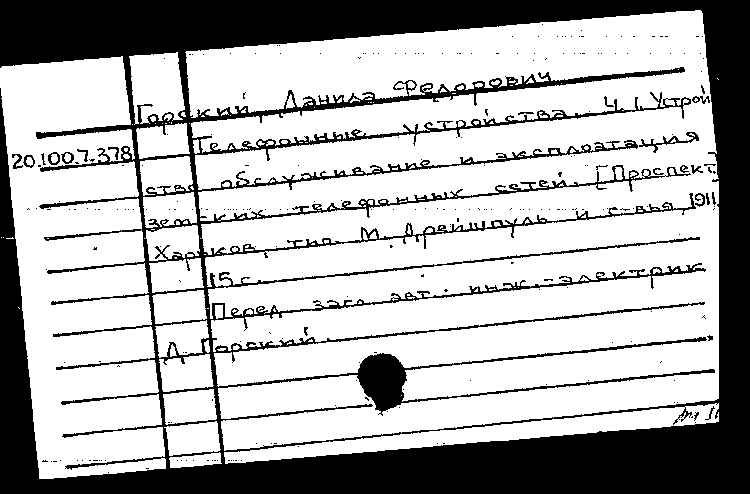 Горский, Данила Федорович
20.100.7.378 Телефонные устройства. Ч. 1. Устрой
ство обслуживание и эксплоатация
земских телефонных сетей. [Проспект]
Харьков, тип. М. Дрейшпуль и с-вья, 1911.
15 с.
Перед загл. авт.: инж.-электрик
Д. Горский.